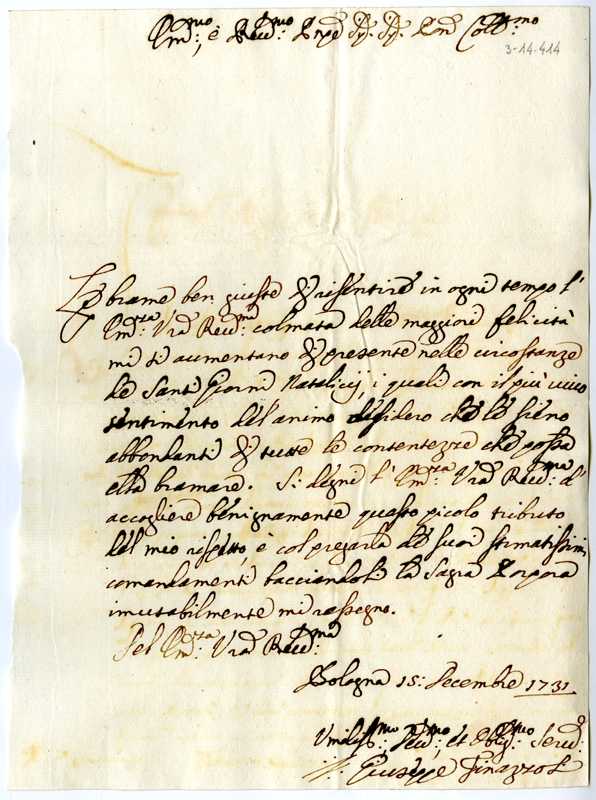 Em:mo, e Reu:mo Prnpe Sig. Sig. Pron Coll:mo
3-14-414
Le brame ben giuste di risentire in ogni tempo l'
Em:za Vra Reu:ma colmata delle maggiori felicità
mi si aumentano di presente nelle circostanze
de Santi Giorni Natalicij, i quali con il più uiuo
sentimento del animo desidero che le sieno
abbondanti di tutte le contentezze che possa
ella bramare. Si degni l'Em:za Vra Reu:ma d'
accogliere benignamente questo picolo tributo
del mio rispetto, e col pregarla de suoi stimatissimi
comandamenti bacciandole la Sagra Porpora
imutabilmente mi rassegno.
Del Em:za Vra Reu:ma
Bologna 15: Decembre 1731.
Vmiliss:mo Deu:mo et Obbg:mo Serud:
Giuseppe Finazzoli